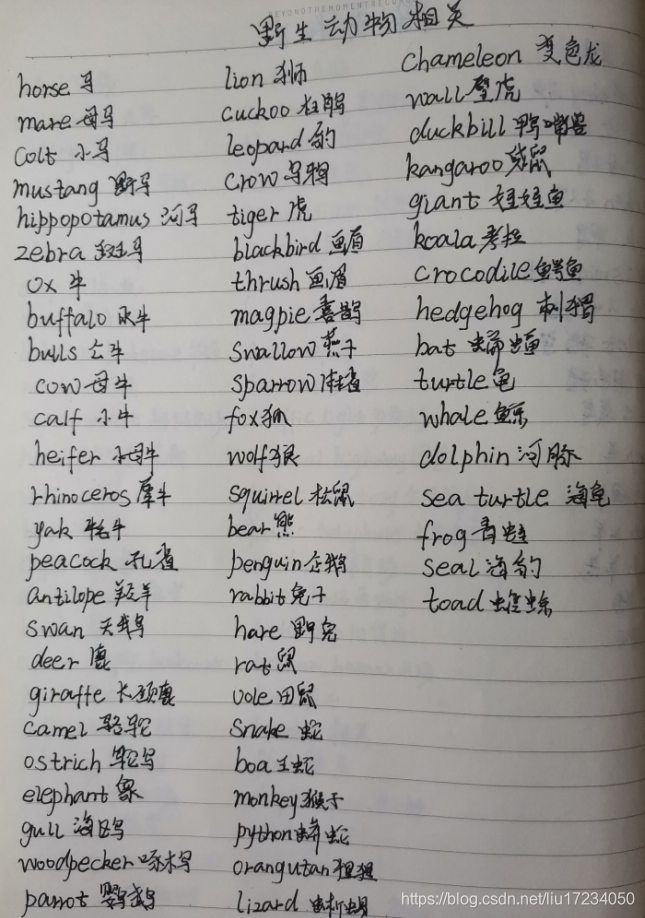 BEYONDTHEMOMENTRECOR
野生动物相关
horse 马
mare 母马
colt 小马
mustang 野马
hippopotamus 河马
zebra 斑马
ox 牛
buffalo 水牛
bulls 公牛
cow 母牛
calf 小牛
heifer 小母牛
rhinoceros 犀牛
yak 牦牛
peacock 孔雀
antilope 羚羊
swan 天鹅
deer 鹿
giraffe 长颈鹿
camel 骆驼
ostrich 鸵鸟
elephant 象
gull 海鸥
woodpecker 啄木鸟
parrot 鹦鹉
lion 狮
cuckoo 杜鹃
leopard 豹
crow 乌鸦
tiger 虎
blackbird 画眉
thrush 画眉
magpie 喜鹊
swallow 燕子
sparrow 麻雀
fox 狐
wolf 狼
squirrel 松鼠
bear 熊
penguin 企鹅
rabbit 兔子
hare 野兔
rat 鼠
vole 田鼠
snake 蛇
boa 王蛇
monkey 猴子
python 蟒蛇
orangutan 猩猩
lizard 蜥蜴
chameleon 变色龙
wall 壁虎
duckbill 鸭嘴兽
kangaroo 袋鼠
giant 娃娃鱼
koala 考拉
crocodile 鳄鱼
hedgehog 刺猬
bat 蝙蝠
turtle 龟
whale 鲸
dolphin 河豚
sea turtle 海龟
frog 青蛙
seal 海豹
toad 蟾蜍
https://blog.csdn.net/liu17234050